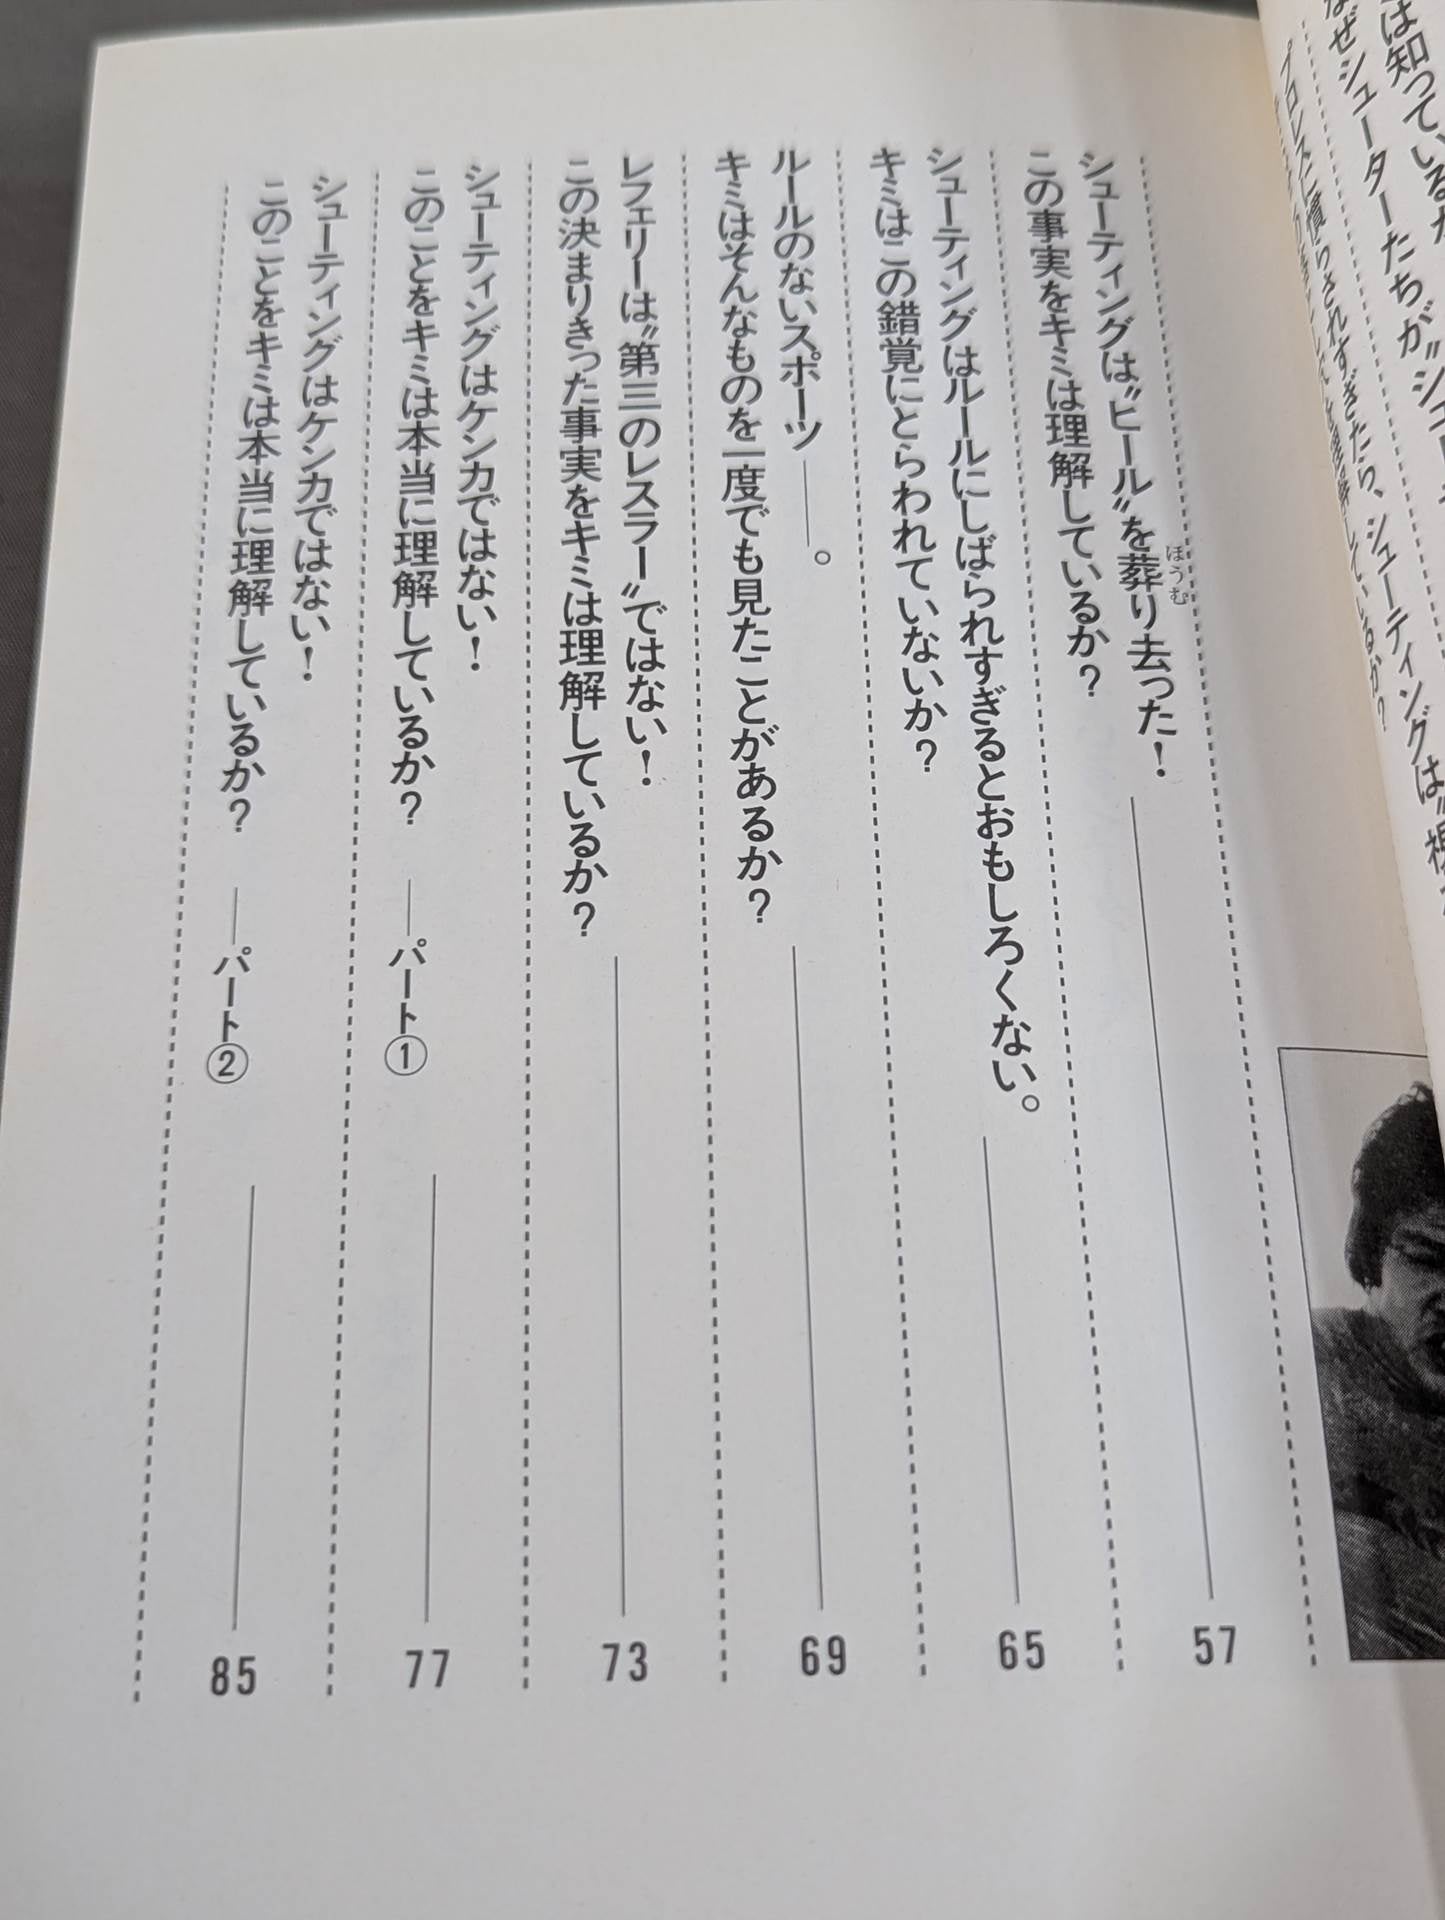 は知っているか
なぜシューターたちが〝シュー
プロレスに慣らされすぎたら、シューティングは〝
シューティングは〝ヒール〟を葬り去った!
ほうむ
この事実をキミは理解しているか?
57
シューティングはルールにしばられすぎるとおもしろくない。
キミはこの錯覚にとらわれていないか?
65
ルールのないスポーツ――。
キミはそんなものを一度でも見たことがあるか?
69
レフェリーは〝第三のレスラー〟ではない!
この決まりきった事実をキミは理解しているか?
73
シューティングはケンカではない!
このことをキミは本当に理解しているか? ――パート①
77
シューティングはケンカではない!
このことをキミは本当に理解しているか? ――パート②
85